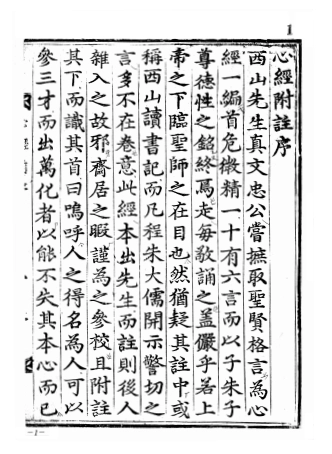 1
心經附註序
西山先生真文忠公嘗摭取聖賢格言為心
經一編首危微精一十有六言而以子朱子
尊德性之銘終焉走每敬誦之蓋儼乎若上
帝之下臨聖師之在目也然猶疑其註中或
稱西山讀書記而凡程朱大儒開示警切之
言多不在卷意此經本出先生而註則後人
雜入之故邪齋居之暇謹為之參校且附註
其下而識其首曰嗚呼人之得名為人可以
參三才而出萬化者以能不失其本心而已
-1-